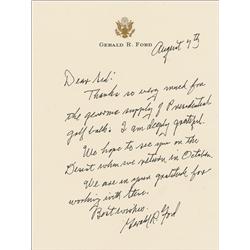 GERALD R. FORD
August 7th
Dear Red:
Thanks so very much for
the generous supply of Presidential
golf balls. I am deeply grateful.
We hope to see you on the
Desert when we return in October.
We are in your gratitude for
working with
Best wishes,
Gerald R. Ford